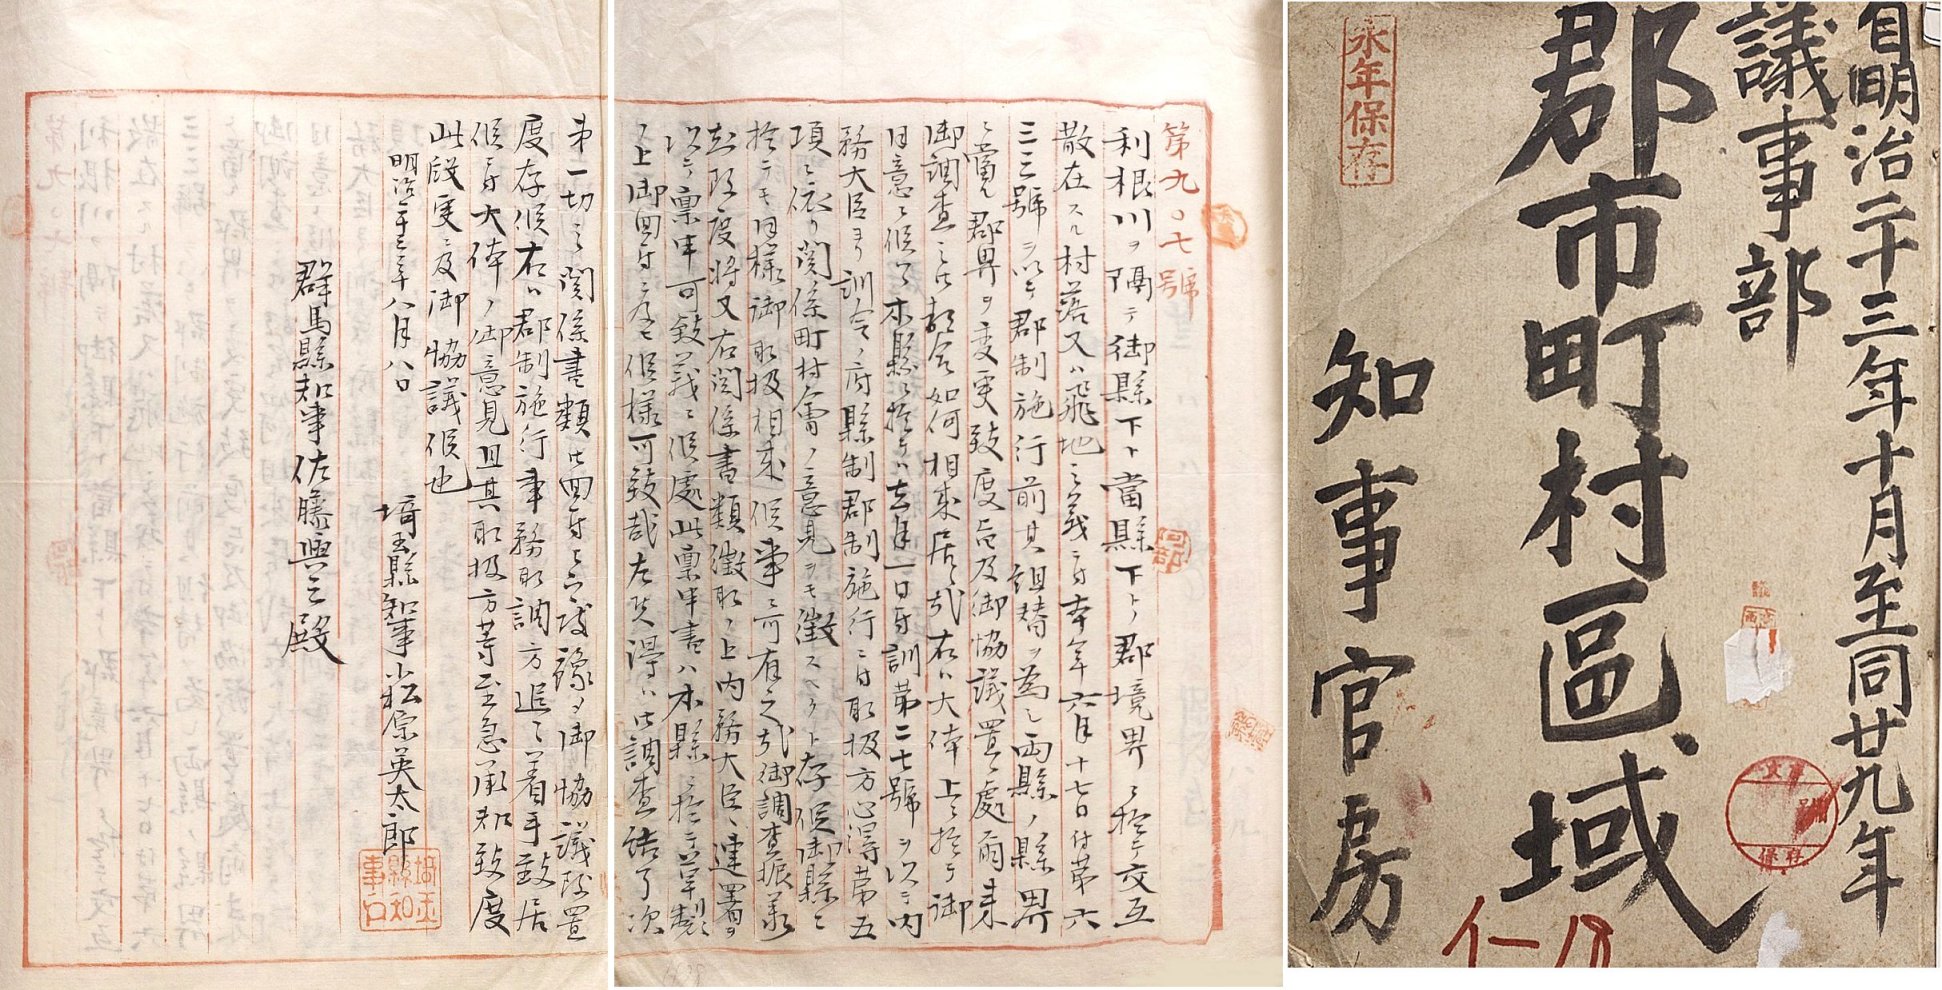 自明治二十三年十月至同廿九年
議事部
郡市町村區域
知事官房
永年保存
保存
第九〇七號
利根川ヲ隔テ御縣下ト當縣下ト郡境界ニ於テ交互
散在スル村落又ハ飛地之義ニ付本年六月十七日付第六
三三號ヲ以テ郡制施行前其組替ヲ為シ両縣ノ縣界
ニ當ル郡界ヲ変更致度旨及御協議置候處爾来
御調査之末都合如何相成居候哉右ハ大体上ニ於テ御
同意ニ候ハヽ本縣ニ於テハ去月一日付訓第二七號ヲ以テ内
務大臣ヨリ訓令ノ府縣制郡制施行ニ付取扱方心得第五
項ニ依リ関係町村會ノ意見ヲモ徴スヘクト存候御縣ニ
於テモ同様御取扱相成候事ニ可有之哉御調査振承
知致度将又右関係書類徴取ノ上内務大臣ヘ連署ヲ
以テ稟申可致義ニ候處此稟申書ハ本縣ニ於テ草製
之上御回付ニ及候様可致哉左スレハ調査結了次
第一切之関係書類御回付之義豫メ御協議致置
度存候右ハ郡制施行事務取調方追々着手致居
候ニ付大体ノ御意見且其取扱方等至急承知致度
此段更ニ及御協議候也
明治二十三年八月八日
埼玉縣知事小松原英太郎
埼玉縣知事口
群馬縣知事佐藤與三殿